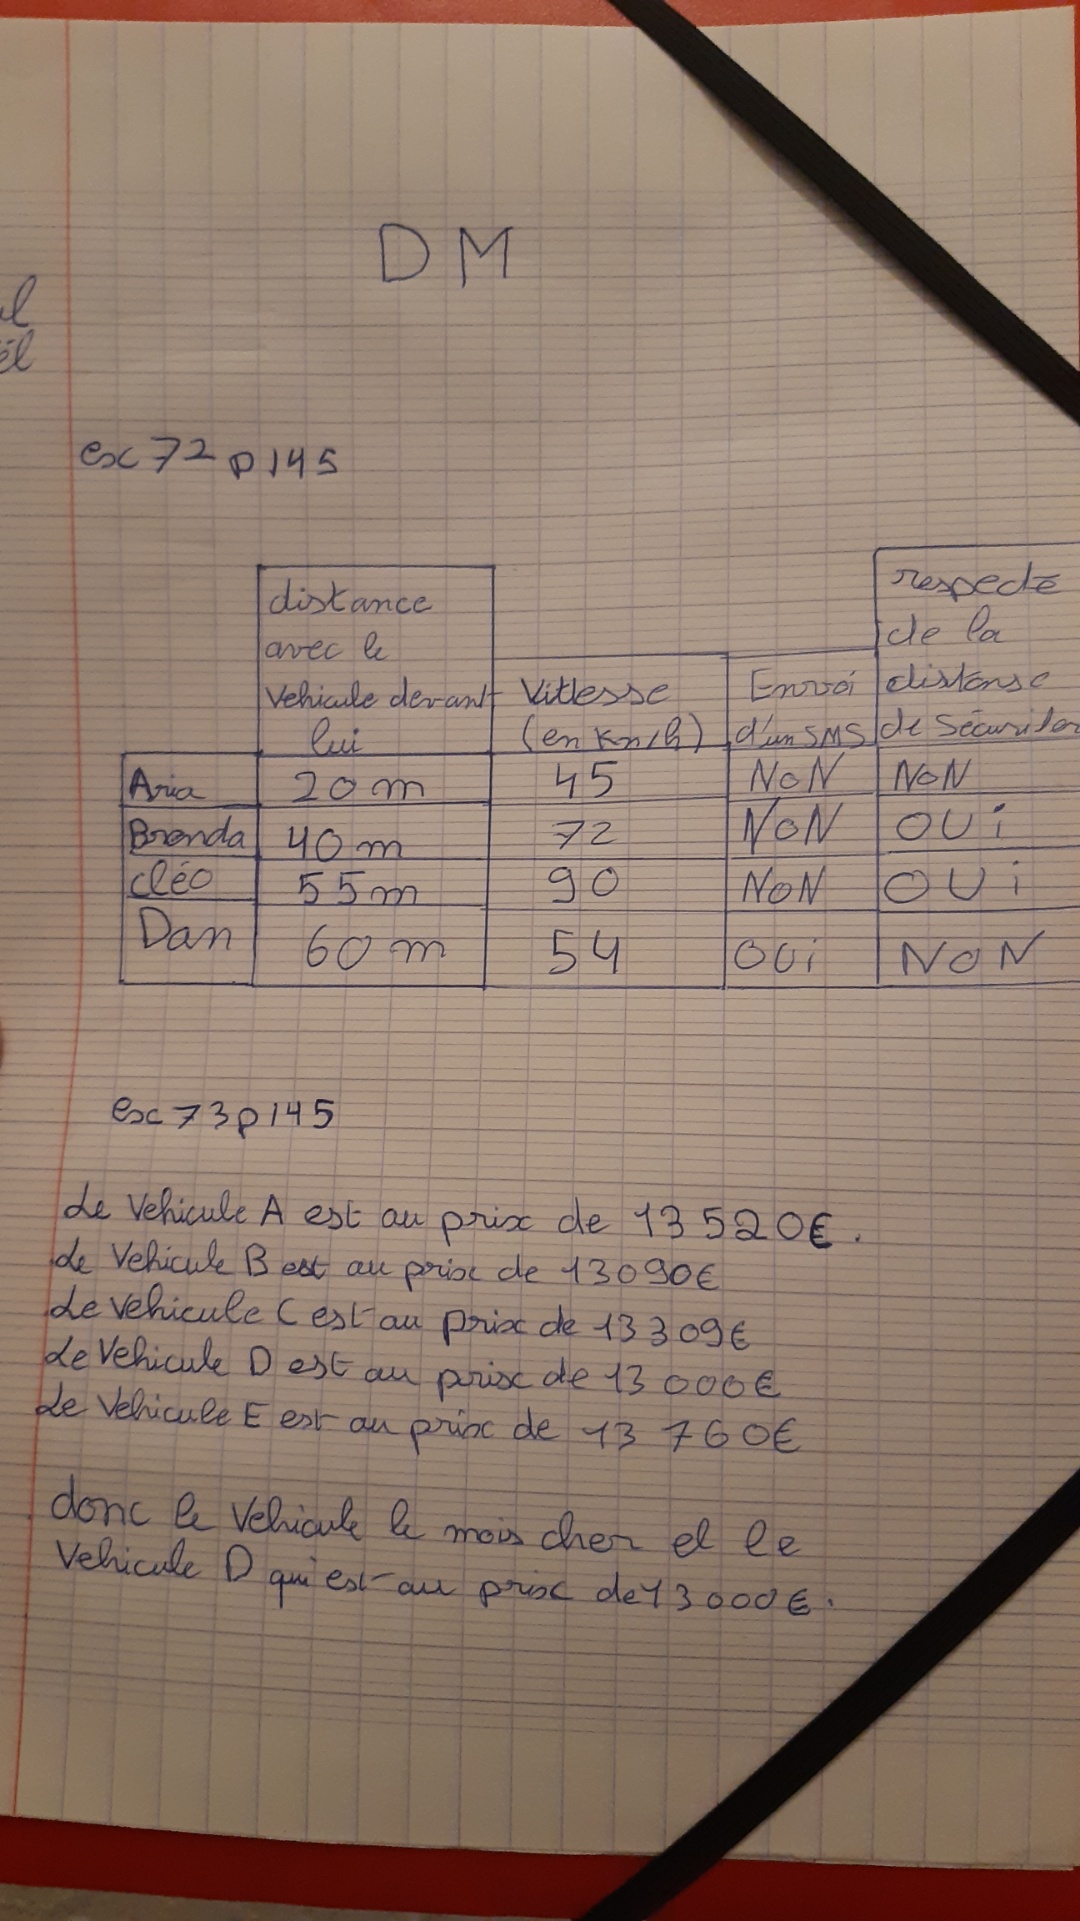 DM
el
ël
exc 72 p 145
distance
avec le
Vehicule devant
lui
Vitlesse
(en Km/h)
Envoi
d'un SMS
respecte
de la
distanse
de Sécuriter
Aria 20 m 45 NoN NoN
Brenda 40 m 72 NoN OUi
cléo 55 m 90 NoN OUi
Dan 60 m 54 OUi NoN
exc 73 p 145
Le Vehicule A est au prix de 13 520€.
Le Vehicule B est au prix de 13090€
Le Vehicule C est au prix de 13 309€
Le Vehicule D est au prix de 13 000€
Le Vehicule E est au prix de 13 760€
donc le Vehicule le mois cher et le
Vehicule D qui est au prix de 13 000€.